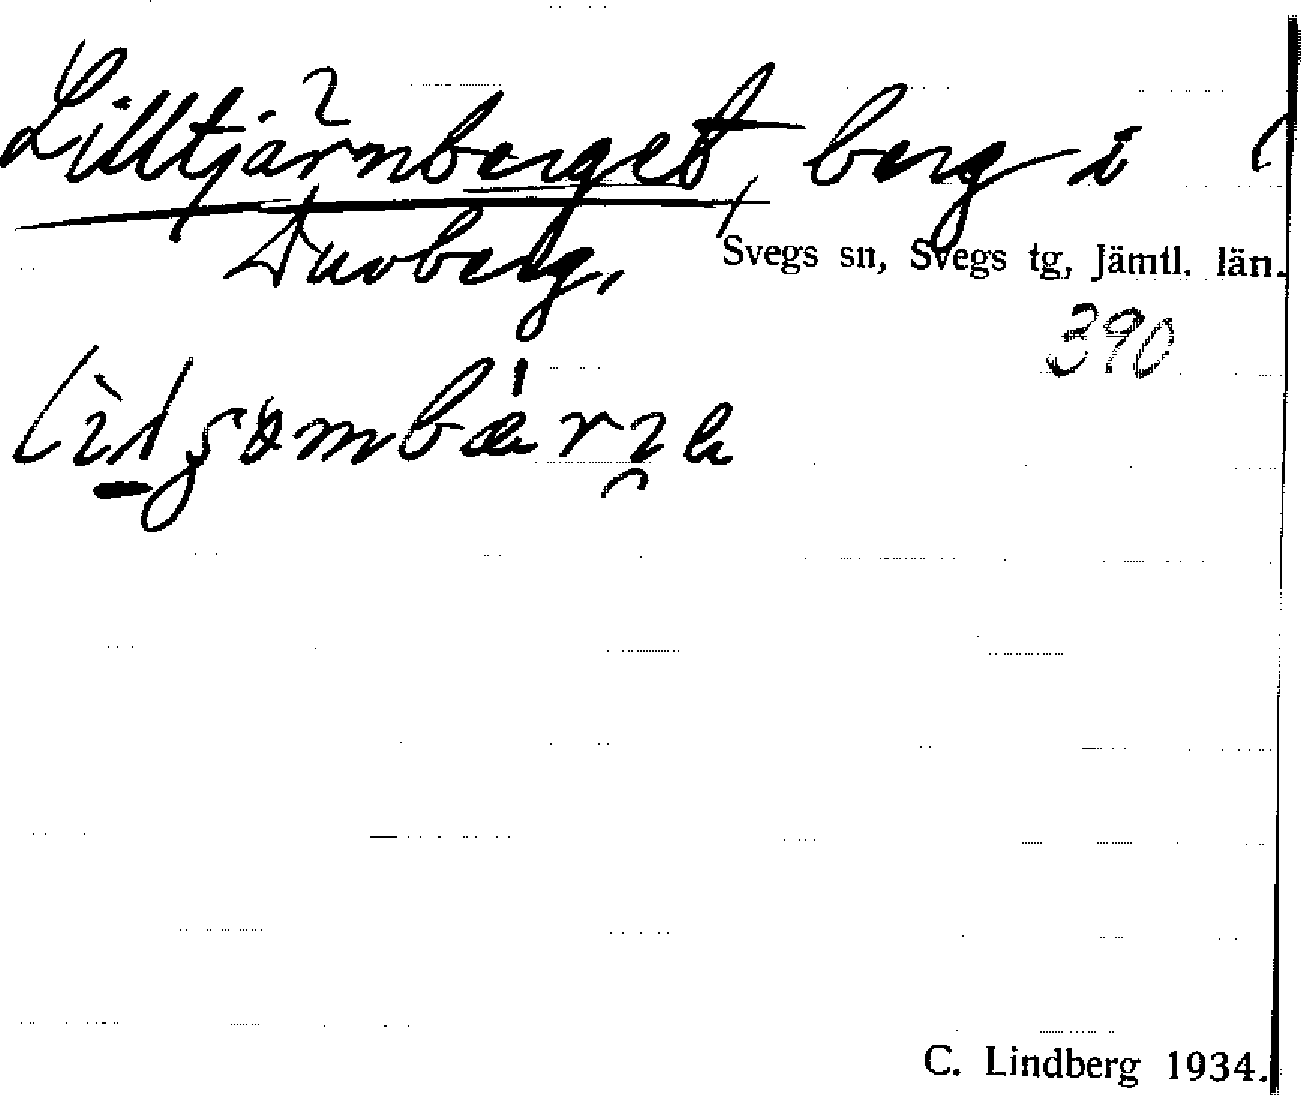 Lilltjärnberget, berg i
Duvberg, Svegs sn, Svegs tg, Jämtl. län.
390
C. Lindberg 1934.